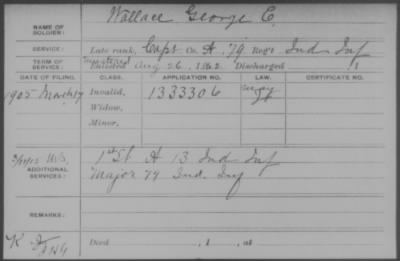 NAME OF SOLDIER: Wallace George C.
SERVICE: Late rank, Capt Co. A, 79 Reg't Ind Inf
TERM OF SERVICE: Mustered Enlisted Aug 26, 1862 Discharged , 1
DATE OF FILING. CLASS. APPLICATION NO. LAW. CERTIFICATE NO.
1905 Invalid, 1333306
Widow,
Minor,
ADDITIONAL SERVICES: 1st A 13 Ind Inf
Major 79 Ind. Inf
REMARKS:
K Died , 1 , at